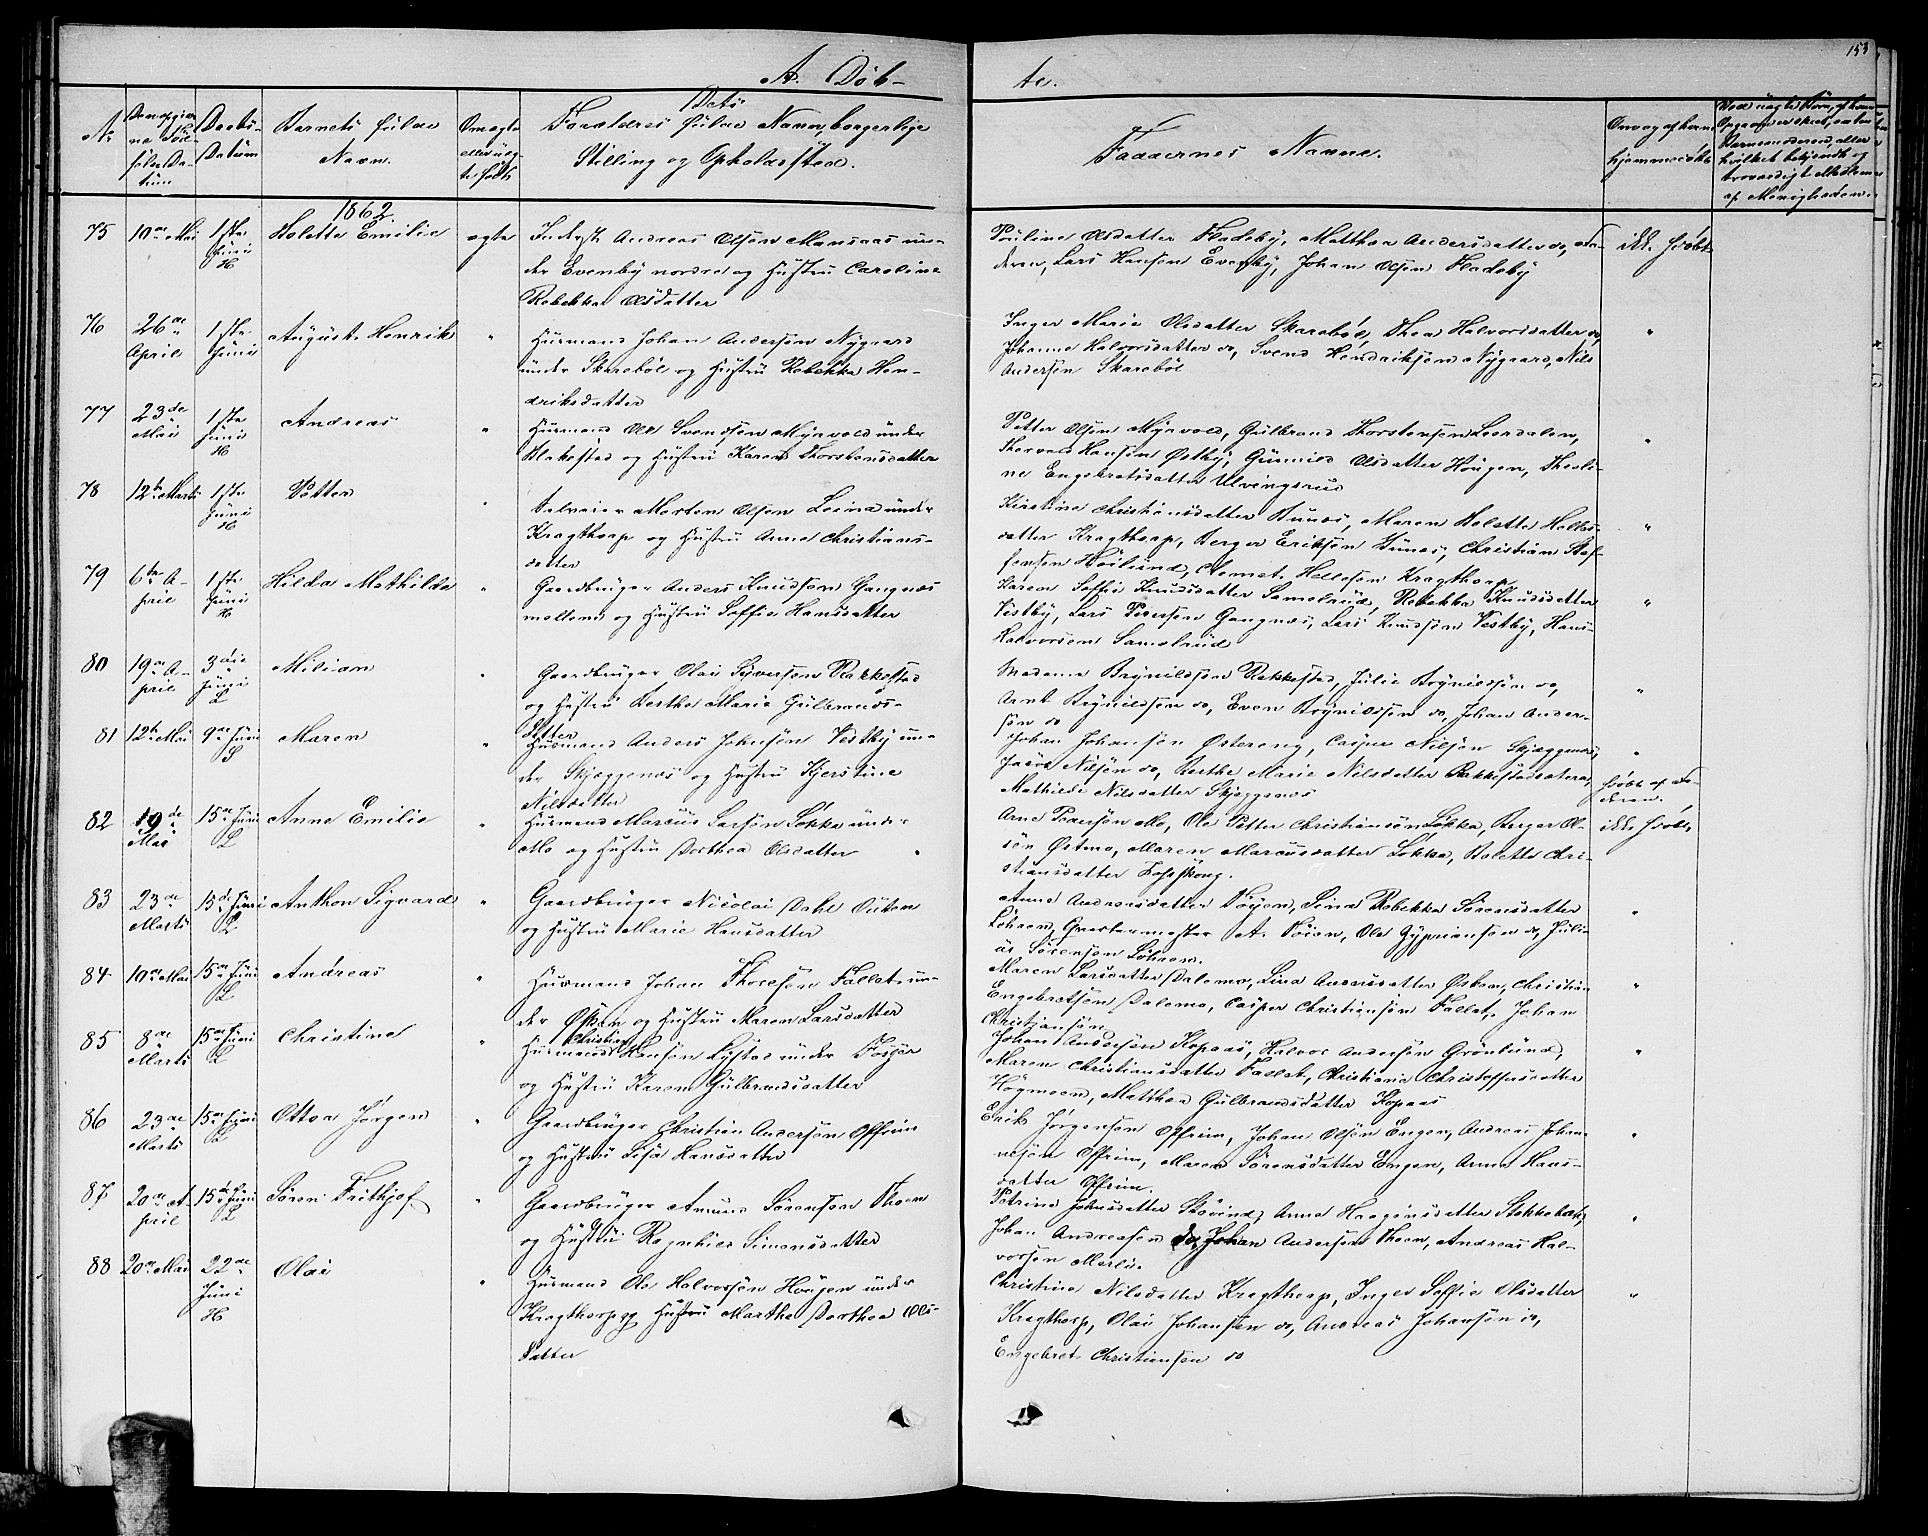 153
A. Døb-
te.
No
Daabs-
Datum
Barnets fulde
Navn.
Om ægte
eller uæg-
te født
Forældres fulde Navn, borgerlige
Stilling og Opholdssted.
Faddernes Navne.
Om og af hvem
hjemmedøbt
1862.
75 10de Mai 1ste Juni H Bolette Emilie ægte
Inderst Andreas Olsen Mansaas un-
der Evenby nordre og Hustru Caroline
Rebekka Olsdatter
Pauline Olsdatter Fladeby, Matthea Andersdatter do, Fa-
deren, Lars Hansen Evenby, Johan Olsen Fladeby
ikke hjdøbt
76 26de April 1ste Juni August Henrik "
Husmand Johan Andersøn Nygaard
under Skarebøl og Hustru Rebekka Hen-
driksdatter
Inger Marie Olsdatter Skarebøl, Thea Halvorsdatter do,
Johanne Halvorsdatter do, Svend Hendriksen Nygaard, Nils
Andersøn Skarebøl
"
77 23de Mai 1ste Juni H Andreas "
Husmand Ole Svendsøn Myrvold under
Blakestad og Hustru Karen Thorstensdatter
Petter Olsen Myrvold, Gulbrand Thorstensen Leerdalen,
Thorvald Hansen Østby, Gunnild Olsdatter Hougen, Theoli-
ne Engebretsdatter Ulvingsrud
"
78 12te Marts 1ste Juni H Petter "
Selveier Morten Olsen Leina under
Kragthorp og Hustru Anne Christians-
datter
Kirstine Christiansdatter Bunæs, Maren Bolette Helles-
datter Kragthorp, Berger Eriksen Bunæs, Christian Stef-
fensen Høilund, Aemet Hellesen Kragthorp
"
79 6te A-
pril 1ste Juni H Hilda Mathilda "
Gaardbruger Anders Knudsøn Gangnæs
mellem og Hustru Soffie Hansdatter
Karen Soffie Knudsdatter Samelrud, Rebekka Knudsdatter
Vestby, Lars Pedersen Gangnæs, Lars Knudsøn Vestby, Hans
Halvorsen Samelrud
"
80 19de A-
pril 3die Juni L Milian "
Gaardbruger Olai Syversen Rakkestad
og Hustru Berthe Marie Gulbrands-
datter
Madame Brynildsøn Rakkestad, Julie Brynildsøn do,
Arnt Brynildsøn do, Even Brynildsøn do, Johan Ander-
søn do
"
81 12te Mai 9de Juni S Maren "
Husmand Anders Johnsøn Vestby un-
der Skjæggenæs og Hustru Kjerstine
Nilsdatter
Johan Johansøn Østereng, Casper Nilsøn Skjæggenæs,
Jacob Nilsøn do, Berthe Marie Nilsdatter Rakkestadsætera,
Mathilde Nilsdatter Skjæggenæs
"
82 19de Mai 15de Juni L Anne Emilie "
Husmand Marcus Larsøn Løkka under
Mo og Hustru Dorthea Olsdatter
Arne Pedersøn Mo, Ole Petter Christiansøn Løkka, Berger Ol-
søn Østmo, Maren Marcusdatter Løkka, Bolette Chri-
stiansdatter
hjdøbt af Fa-
deren.
ikke hjdøbt,
83 23de Marts 15de Juni L Anthon Sigvard "
Gaardbruger Nicolai Dahl
og Hustru Marie Hansdatter
Anne Andersdatter Føien, Lina Rebekka Sørensdatter
Løhren, Qvartermester A. Føien, Ole Gyprianson do, Juli-
us Sørensen Løhren.
"
84 10de Mai 15de Juni L Andreas "
Husmand Johan Thoresøn Fallet un-
der Østern og Hustru Maren Larsdatter
Maren Larsdatter Dalemo, Lina Andersdatter Østern, Christian
Engebretsøn Dalemo, Casper Christiansøn Fallet, Johan
Christiansøn
"
85 8de Marts 15de Juni L Christine "
Husmand Christian Hansøn Lystad under Fosser
og Hustru Karen Gulbrandsdatter
Johan Andersøn Kopaas, Halvor Andersøn Grønlund,
Maren Christiansdatter Fallet, Christiane Christoffersdatter
Høgmoen, Matthea Gulbrandsdatter Kopaas
"
86 23de Marts 15de Juni L Ottoa Jørgen "
Gaardbruger Christian Andersen Opfrim
og Hustru Lisa Hansdatter
Erik Jørgensøn Opfrim, Johan Olsøn Engen, Andreas Johan-
nesøn Opfrim, Maren Sørensdatter Engen, Anne Hans-
datter Opfrim.
"
87 20de A-
pril 15de Juni L Søren Frithjof "
Gaardbruger Amund Sørensøn Thoen
og Hustru Ragnhild Simensdatter
Petrine Johnsdatter Skovind, Anne Haagensdatter Stokkebæk,
Johan Andreasen do, Johan Andersen Thoen, Andreas Hal-
vorsen Merli.
"
88 20de Mai 22de Juni H Olai "
Husmand Ole Halvorsøn Hougen under
Kragthorp og Hustru Marthe Dorthea Ols-
datter
Christine Nilsdatter Kragthorp, Inger Soffie Olsdatter
Kragthorp, Olai Johansen do, Andreas Johansøn do,
Engebret Christiansen do
"